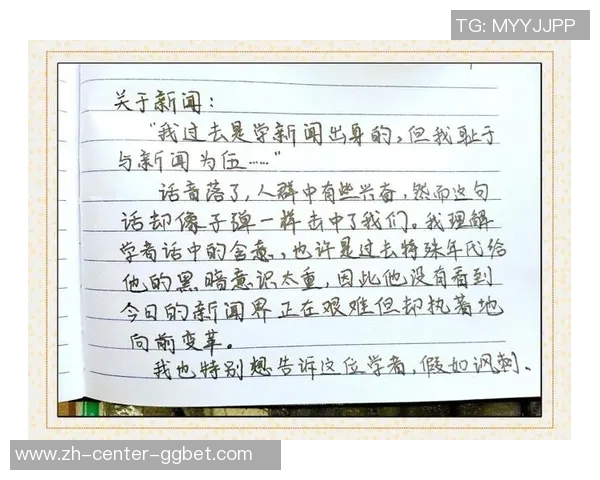 TG: MYYJJPP
关于新闻：
"我过去是学新闻出身的，但我耻于
与新闻为伍……"
话音落了，人群中有些兴奋，然而这句
话却像子弹一样击中了我们。我理解
学者话中的含意，也许是过去特殊年代给
他的黑暗意识太重，因此他没有看到
今日的新闻界正在艰难但却执着地
向前变革。
我也特别想告诉这位学者，假如讽刺、
www.zh-center-ggbet.com